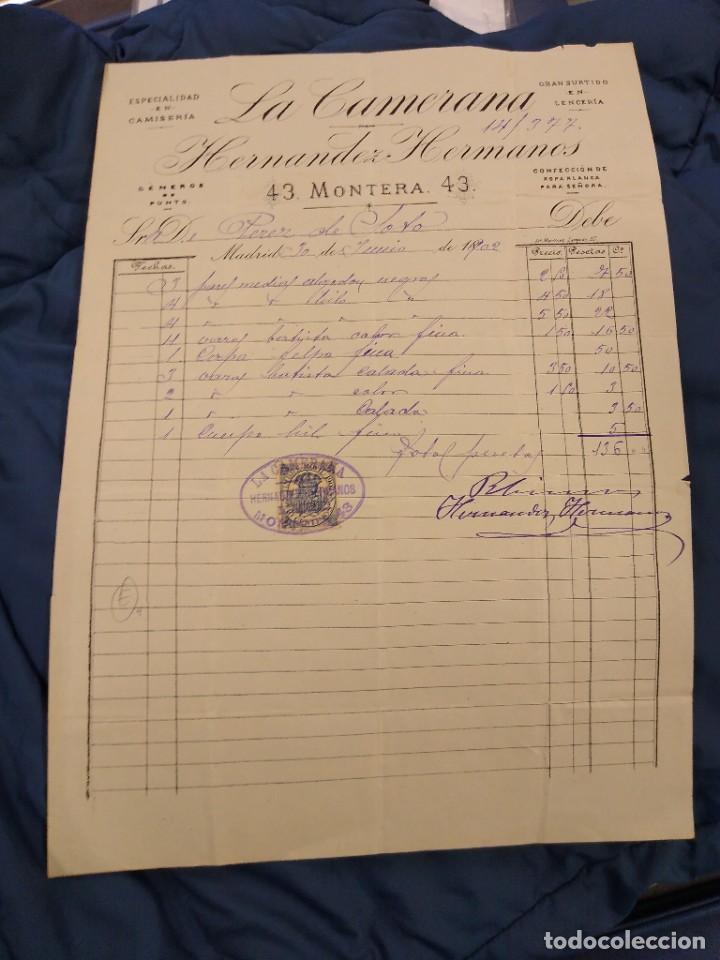 ESPECIALIDAD
EN
CAMISERÍA
La Camerana
GRAN SURTIDO
EN
LENCERÍA
14/377.
Hernandez Hermanos
GÉNEROS
DE
PUNTO.
43. MONTERA. 43.
CONFECCIÓN DE
ROPA BLANCA
PARA SEÑORA.
Perez de Soto
Debe
Madrid 30 de Junio de 1902
Fechas. Precio. Pesetas Cs
3 pares medias caladas negras 2 50 7 50
4 " " hilo " 4 50 18
4 " " " 5 50 22
4 varas batista color fina 1 50 16 50
1 felpa fina 50
3 varas batista calada fina 3 50 10 50
2 " " color 1 50 3
1 " " Calada 3 50
1 hilo fina 5
Total pesetas 136
LA CAMERANA
HERNANDEZ HERMANOS
MONTERA 43
Recibimos
Hernandez Hermanos
E
todocoleccion